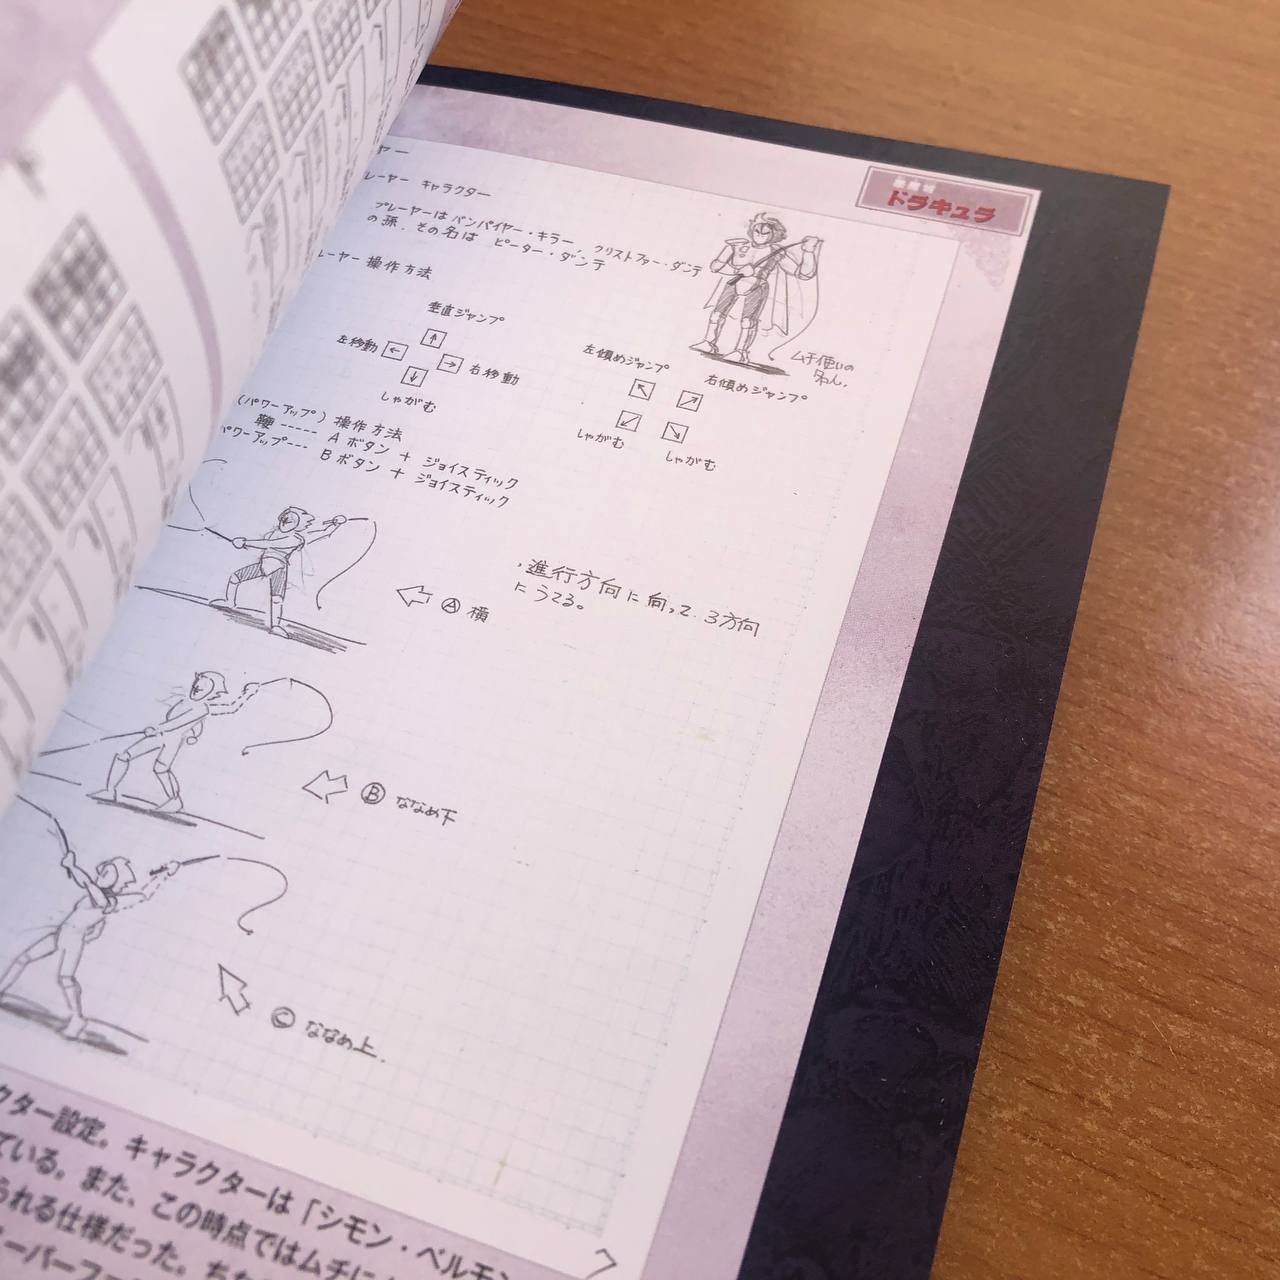 悪魔城
ドラキュラ
ヤー
レーヤー キャラクター
プレーヤーは バンパイヤー・キラー、クリストファー・ダンテ
の孫. その名は ピーター・ダンテ
ムチ使いの
名人.
レーヤー 操作方法
垂直ジャンプ
↑
左移動 ←
→ 右移動
↓
しゃがむ
左傾めジャンプ
右傾めジャンプ
↖ ↗
↙ ↘
しゃがむ
しゃがむ
(パワーアップ) 操作方法
鞭 ----- A ボタン + ジョイスティック
パワーアップ--- B ボタン + ジョイスティック
・進行方向に向って. 3方向
に うてる。
Ⓐ 横
Ⓑ ななめ下
Ⓒ ななめ上.
クター設定。キャラクターは「シモン・ベルモン
ている。また、この時点ではムチに
られる仕様だった。ちな
ーパーファ